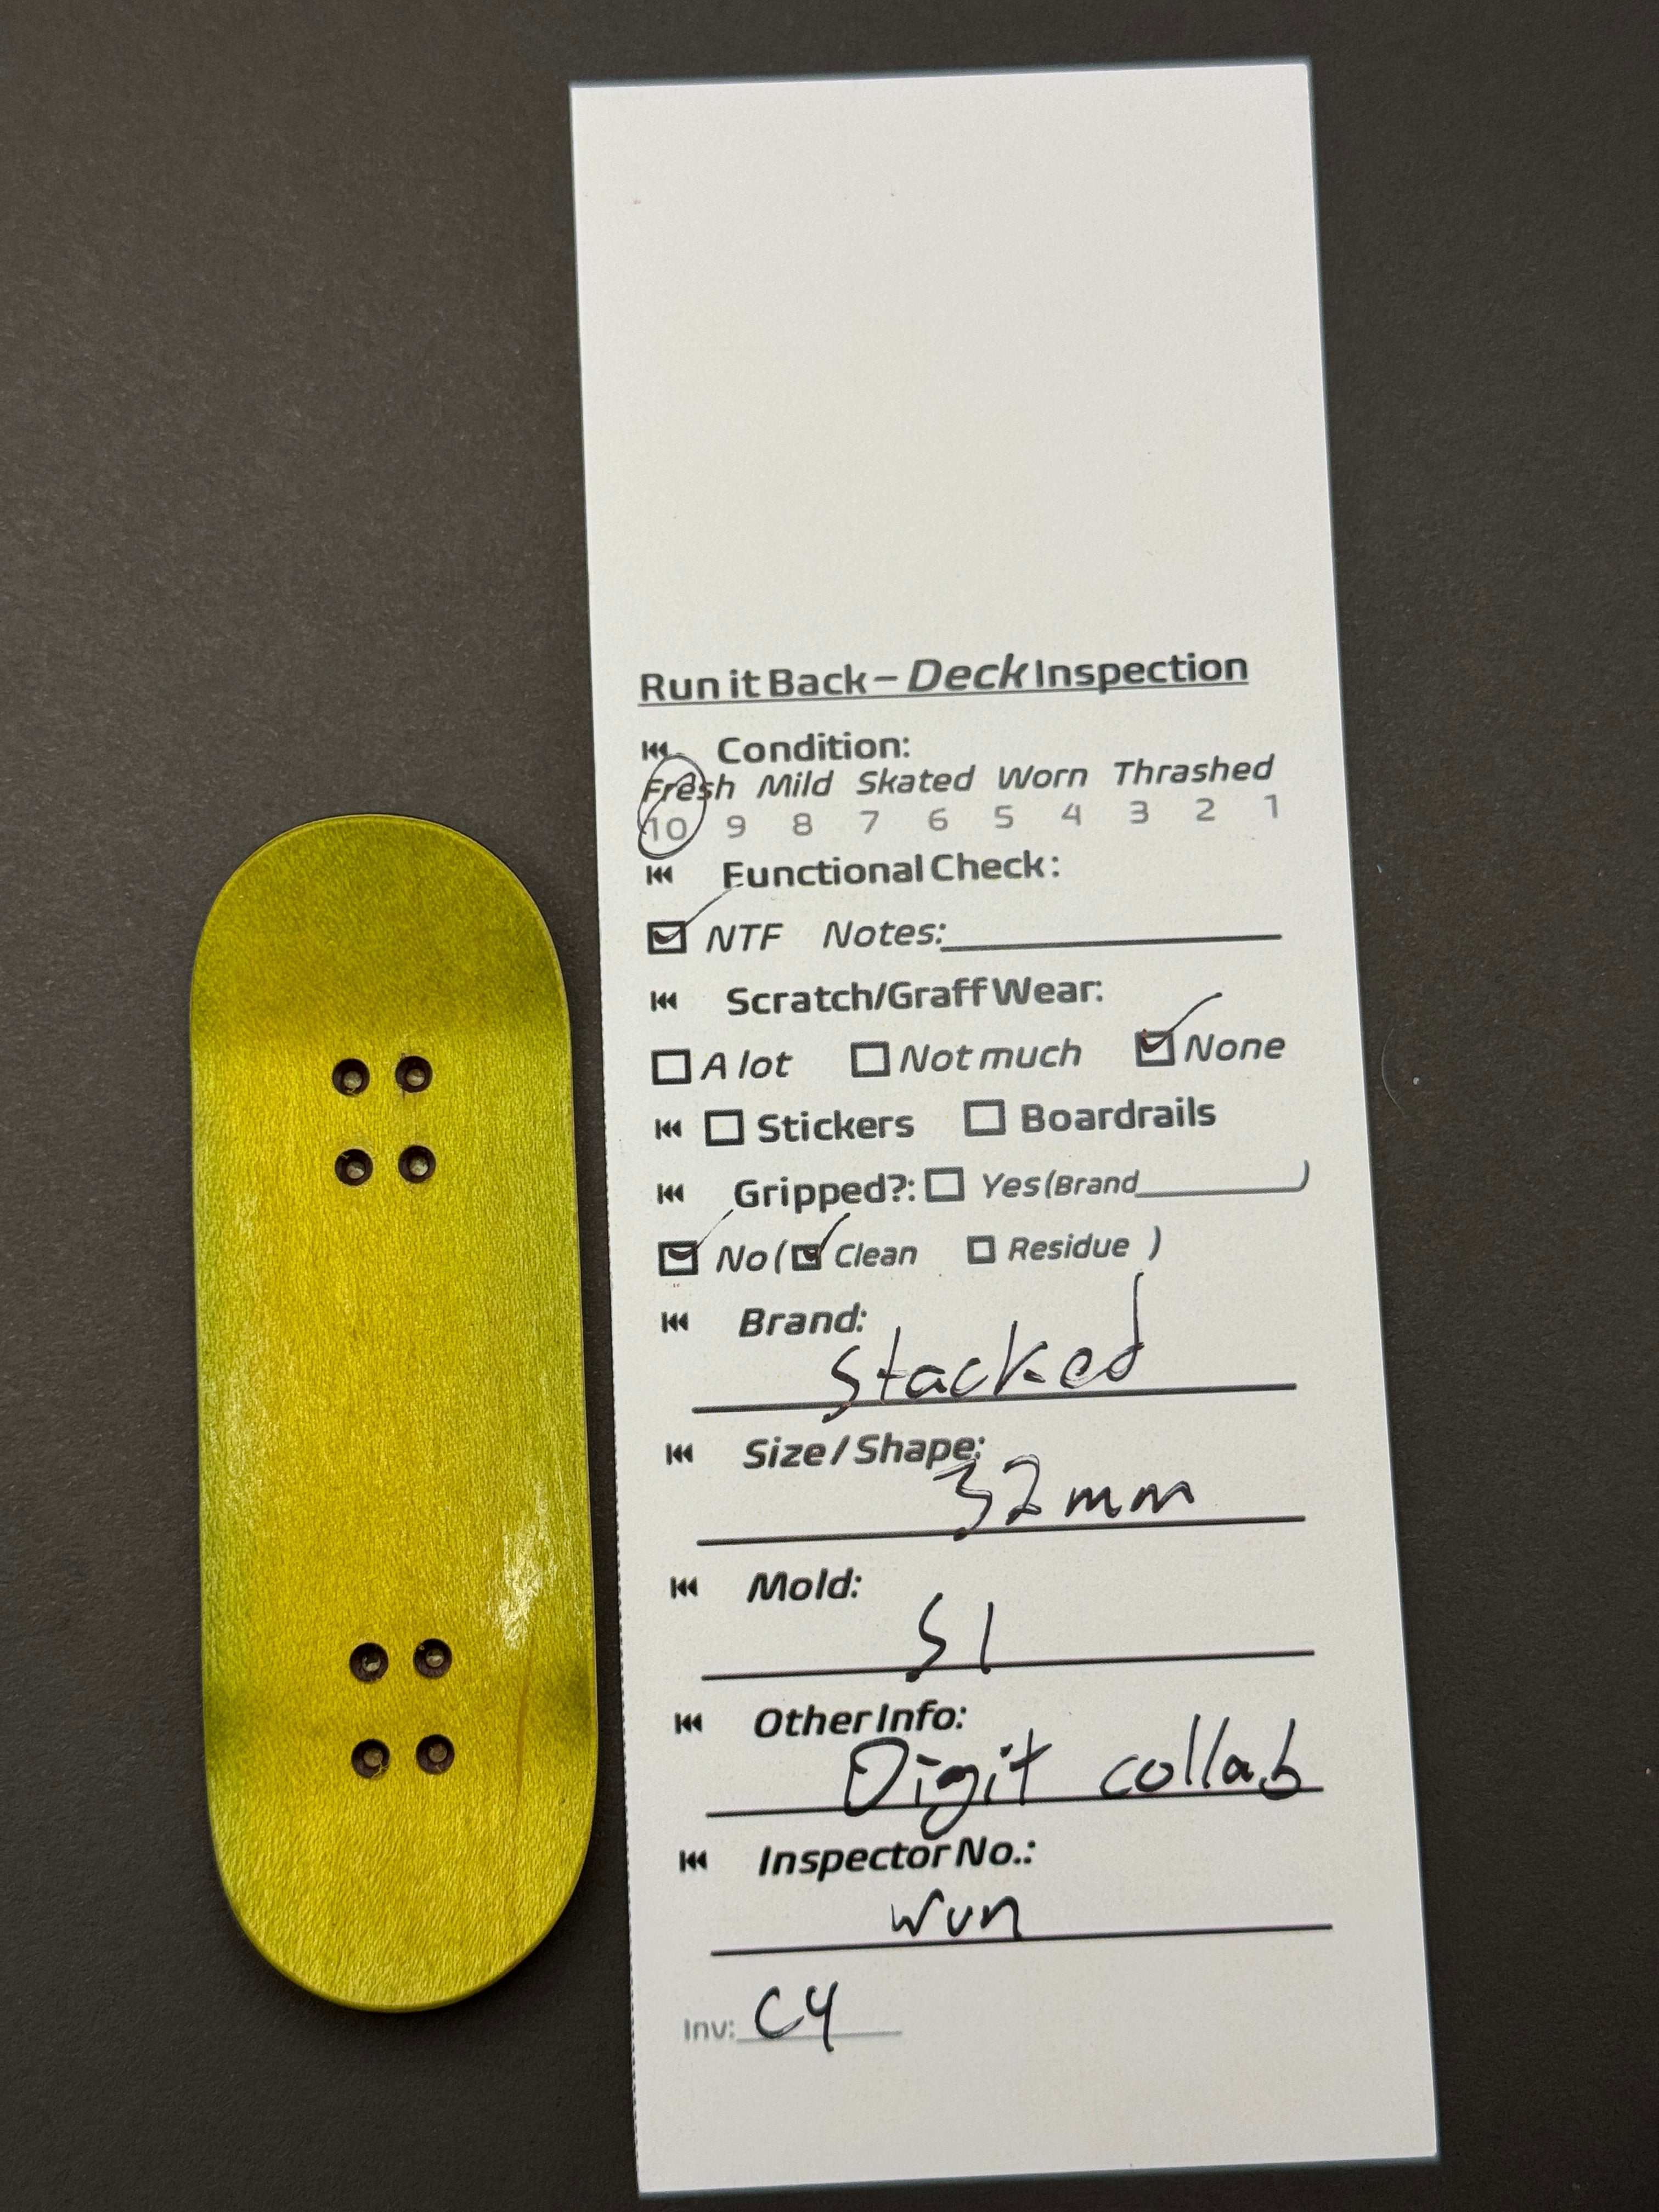 Run it Back – Deck Inspection
Condition:
Fresh Mild Skated Worn Thrashed
10 9 8 7 6 5 4 3 2 1
Functional Check:
NTF Notes:
Scratch/Graff Wear:
A lot Not much None
Stickers Boardrails
Gripped?: Yes (Brand )
No ( Clean Residue )
Brand:
Stacked
Size / Shape:
32mm
Mold:
S1
Other Info:
Digit collab
Inspector No.:
Wun
Inv: C4